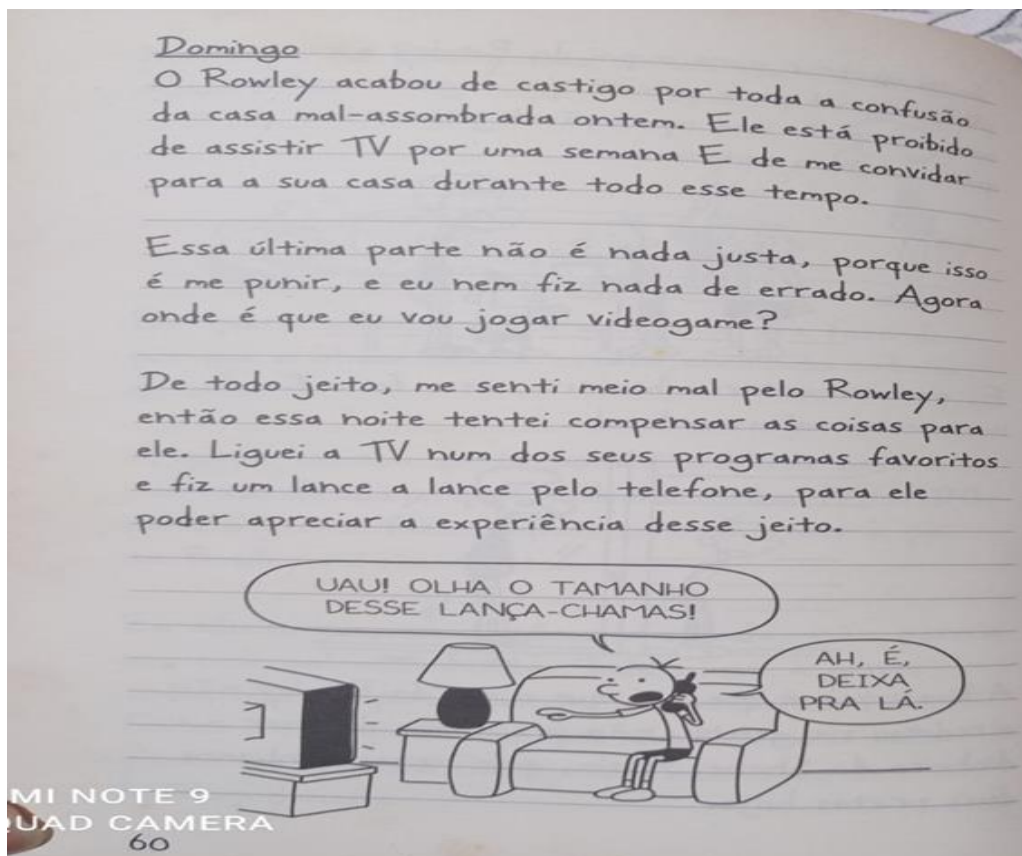 Domingo
O Rowley acabou de castigo por toda a confusão
da casa mal-assombrada ontem. Ele está proibido
de assistir TV por uma semana E de me convidar
para a sua casa durante todo esse tempo.
Essa última parte não é nada justa, porque isso
é me punir, e eu nem fiz nada de errado. Agora
onde é que eu vou jogar videogame?
De todo jeito, me senti meio mal pelo Rowley,
então essa noite tentei compensar as coisas para
ele. Liguei a TV num dos seus programas favoritos
e fiz um lance a lance pelo telefone, para ele
poder apreciar a experiência desse jeito.
UAU! OLHA O TAMANHO
DESSE LANÇA-CHAMAS!
AH, É,
DEIXA
PRA LÁ.
MI NOTE 9
QUAD CAMERA
60